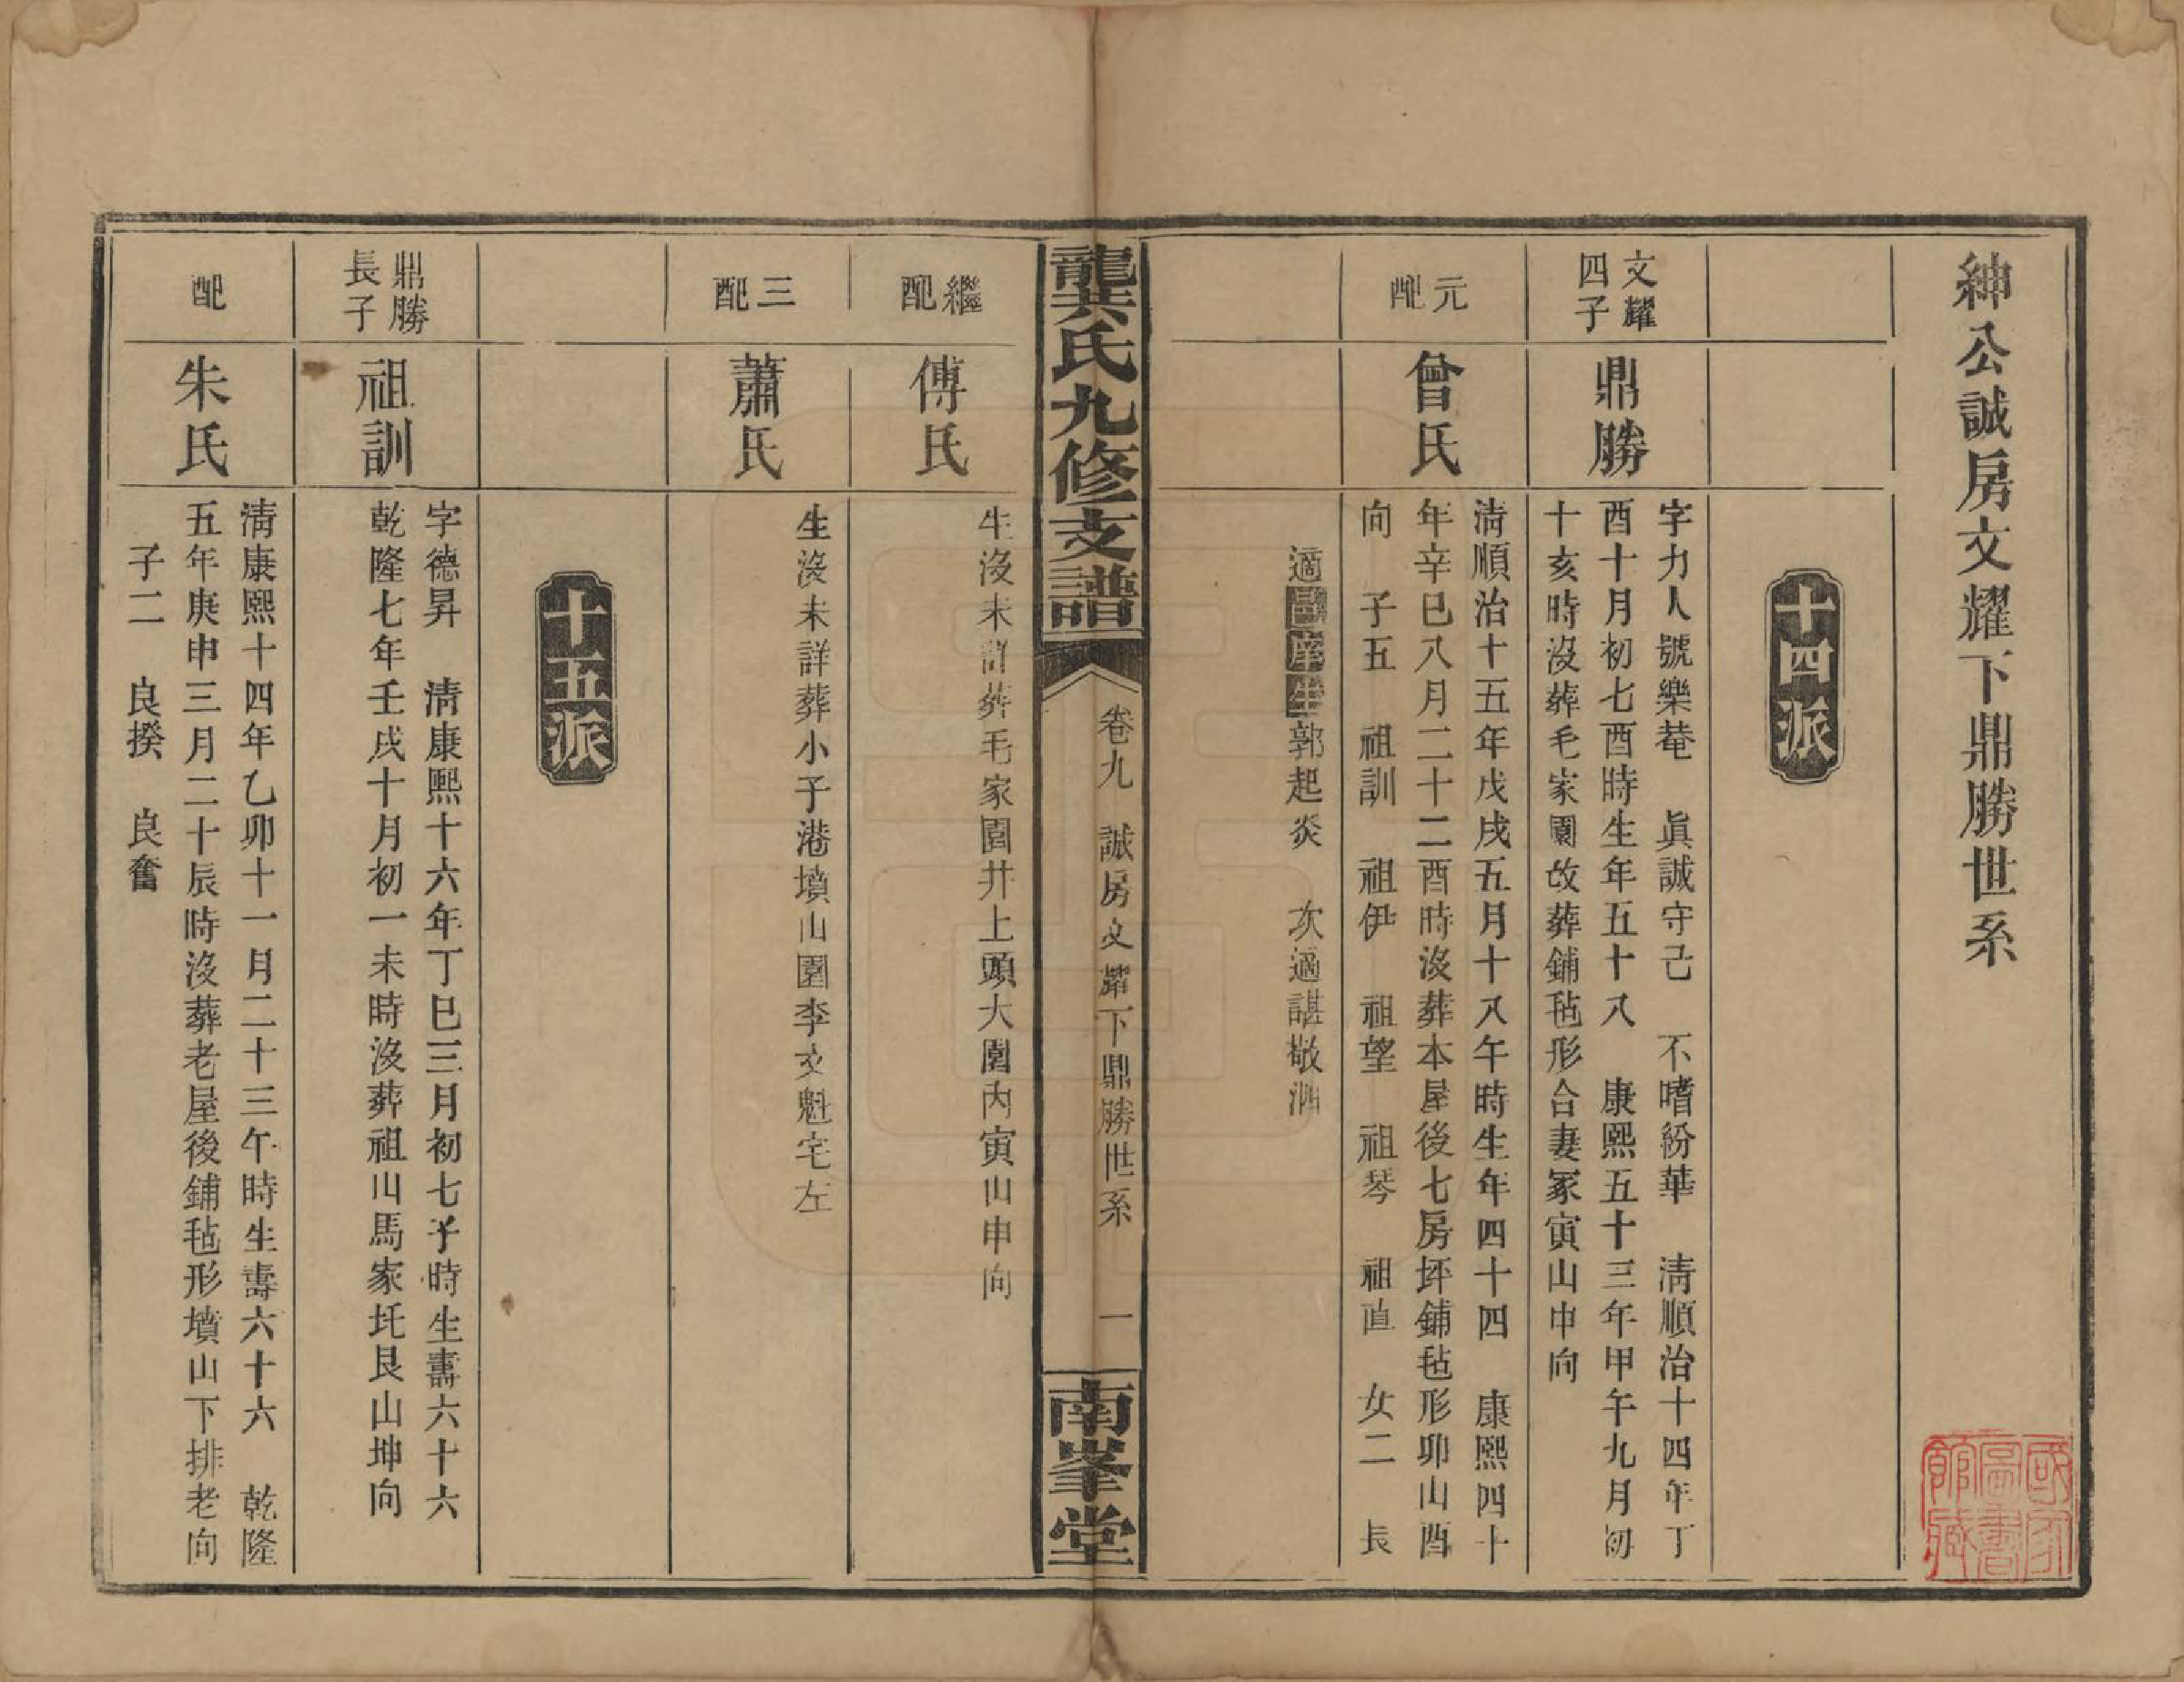 紳公誠房文耀下鼎勝世系
十四派
文耀
四子
鼎勝
字力人號樂菴　眞誠守己　不嗜紛華　清順治十四年丁
酉十月初七酉時生年五十八　康熙五十三年甲午九月初
十亥時沒葬毛家園改葬鋪毡形合妻冢寅山申向
元配
曾氏
清順治十五年戊戌五月十八午時生年四十四　康熙四十
年辛巳八月二十二酉時沒葬本屋後七房坪鋪毡形卯山酉
向　子五　祖訓　祖伊　祖望　祖琴　祖直　女二　長
適郭起炎　次適諶敬泗
龔氏九修支譜
卷九　誠房文耀下鼎勝世系　一
南峯堂
繼配
傅氏
生沒未詳葬毛家園井上頭大園內寅山申向
三配
蕭氏
生沒未詳葬小子港墳山園李文魁宅左
十五派
鼎勝
長子
祖訓
字德昇　清康熙十六年丁巳三月初七子時生壽六十六
乾隆七年壬戌十月初一未時沒葬祖山馬家圫艮山坤向
配
朱氏
清康熙十四年乙卯十一月二十三午時生壽六十六　乾隆
五年庚申三月二十辰時沒葬老屋後鋪毡形墳山下排老向
子二　良揆　良奮
國家圖書館藏